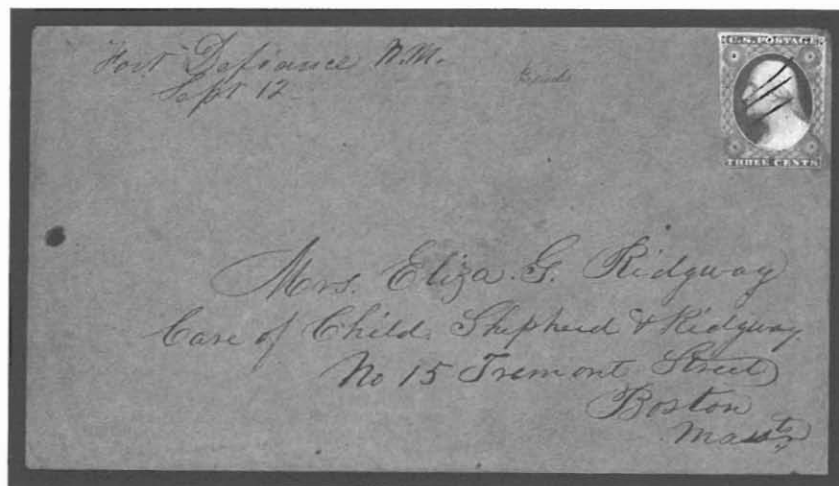 Fort Defiance N.M.
Sept 12
U.S. POSTAGE
THREE CENTS
Mrs. Eliza. G. Ridgway
Care of Child, Shepherd & Ridgway
No 15 Tremont Street
Boston
Massts